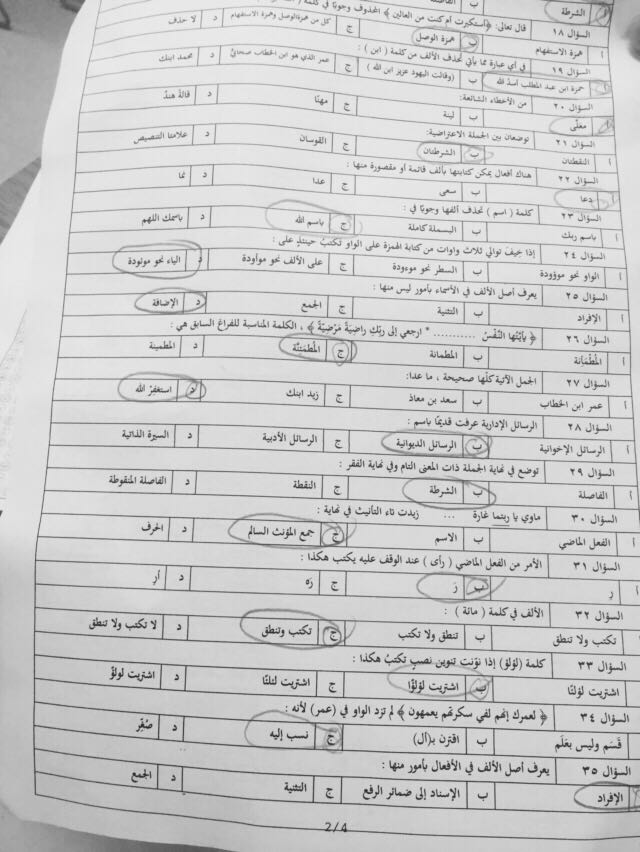 أ الشرطة ب
السؤال ١٨ قال تعالى: ﴿أستكبرت أم كنت من العالين﴾ المحذوف وجوبًا في كلمة
أ همزة الاستفهام ب همزة الوصل ج كل من همزة الوصل وهمزة الاستفهام د لا حذف
السؤال ١٩ في أي عبارة مما يأتي تحذف الألف من كلمة ( ابن ) :
أ حمزة ابن عبد المطلب أسدُ الله ب (وقالت اليهود عزير ابن الله ) ج عمر الذي هو ابن الخطاب صحابيٌّ د محمد ابنك
السؤال ٢٠ من الأخطاء الشائعة:
أ معنًى ب لبنة ج مهنًا د قالهُ هندُ
السؤال ٢١ توضعان بين الجملة الاعتراضية:
أ النقطتان ب الشرطتان ج القوسان د علامتا التنصيص
السؤال ٢٢ هناك أفعال يمكن كتابتها بألف قائمة أو مقصورة منها :
أ دعا ب سعى ج عدا د نما
السؤال ٢٣ كلمة ( اسم ) تحذف ألفها وجوبًا في :
أ باسم ربك ب البسملة كاملة ج باسم الله د باسمك اللهم
السؤال ٢٤ إذا خيف توالي ثلاث واوات من كتابة الهمزة على الواو تكتبُ حينئذٍ على :
أ الواو نحو موؤودة ب السطر نحو موءودة ج على الألف نحو موأودة د الياء نحو موئودة
السؤال ٢٥ يعرف أصل الألف في الأسماء بأمور ليس منها :
أ الإفراد ب التثنية ج الجمع د الإضافة
السؤال ٢٦ ﴿ يأيَّتُها النَّفْسُ .......... * ارجعي إلى ربِّكِ راضِيَةً مَرْضِيَّةً ﴾ ، الكلمة المناسبة للفراغ السابق هي :
أ المُطْمَأنة ب المطمانة ج المُطْمَئنَّة د المطمينة
السؤال ٢٧ الجمل الآتية كلّها صحيحة ، ما عدا:
أ عمر ابن الخطاب ب سعد بن معاذ ج زيد ابنك د استغفِرُ الله
السؤال ٢٨ الرسائل الإدارية عرفت قديمًا باسم :
أ الرسائل الإخوانية ب الرسائل الديوانية ج الرسائل الأدبية د السيرة الذاتية
السؤال ٢٩ توضع في نهاية الجملة ذات المعنى التام وفي نهاية الفقر :
أ الفاصلة ب الشرطة ج النقطة د الفاصلة المنقوطة
السؤال ٣٠ ماوي يا ربتما غارة ... زيدت تاء التأنيث في نهاية :
أ الفعل الماضي ب الاسم ج جمع المؤنث السالم د الحرف
السؤال ٣١ الأمر من الفعل الماضي ( رأى ) عند الوقف عليه يكتب هكذا :
أ رِ ب رَ ج رَه د أرِ
السؤال ٣٢ الألف في كلمة ( مائة ) :
أ تكتب ولا تنطق ب تنطق ولا تكتب ج تكتب وتنطق د لا تكتب ولا تنطق
السؤال ٣٣ كلمة (لؤلؤ) إذا نوّنت تنوين نصبٍ تكتبُ هكذا :
أ اشتريت لؤلئًا ب اشتريت لؤلؤًا ج اشتريت لئلئًا د اشتريت لولؤًا
السؤال ٣٤ ﴿ لعمرك إنهم لفي سكرتهم يعمهون ﴾ لم تزد الواو في (عمر) لأنه :
أ قَسَم وليس بعَلَم ب اقترن بـ(أل) ج نسب إليه د صُغِّر
السؤال ٣٥ يعرف أصل الألف في الأفعال بأمور منها :
أ الإفراد ب الإسناد إلى ضمائر الرفع ج التثنية د الجمع
2/4